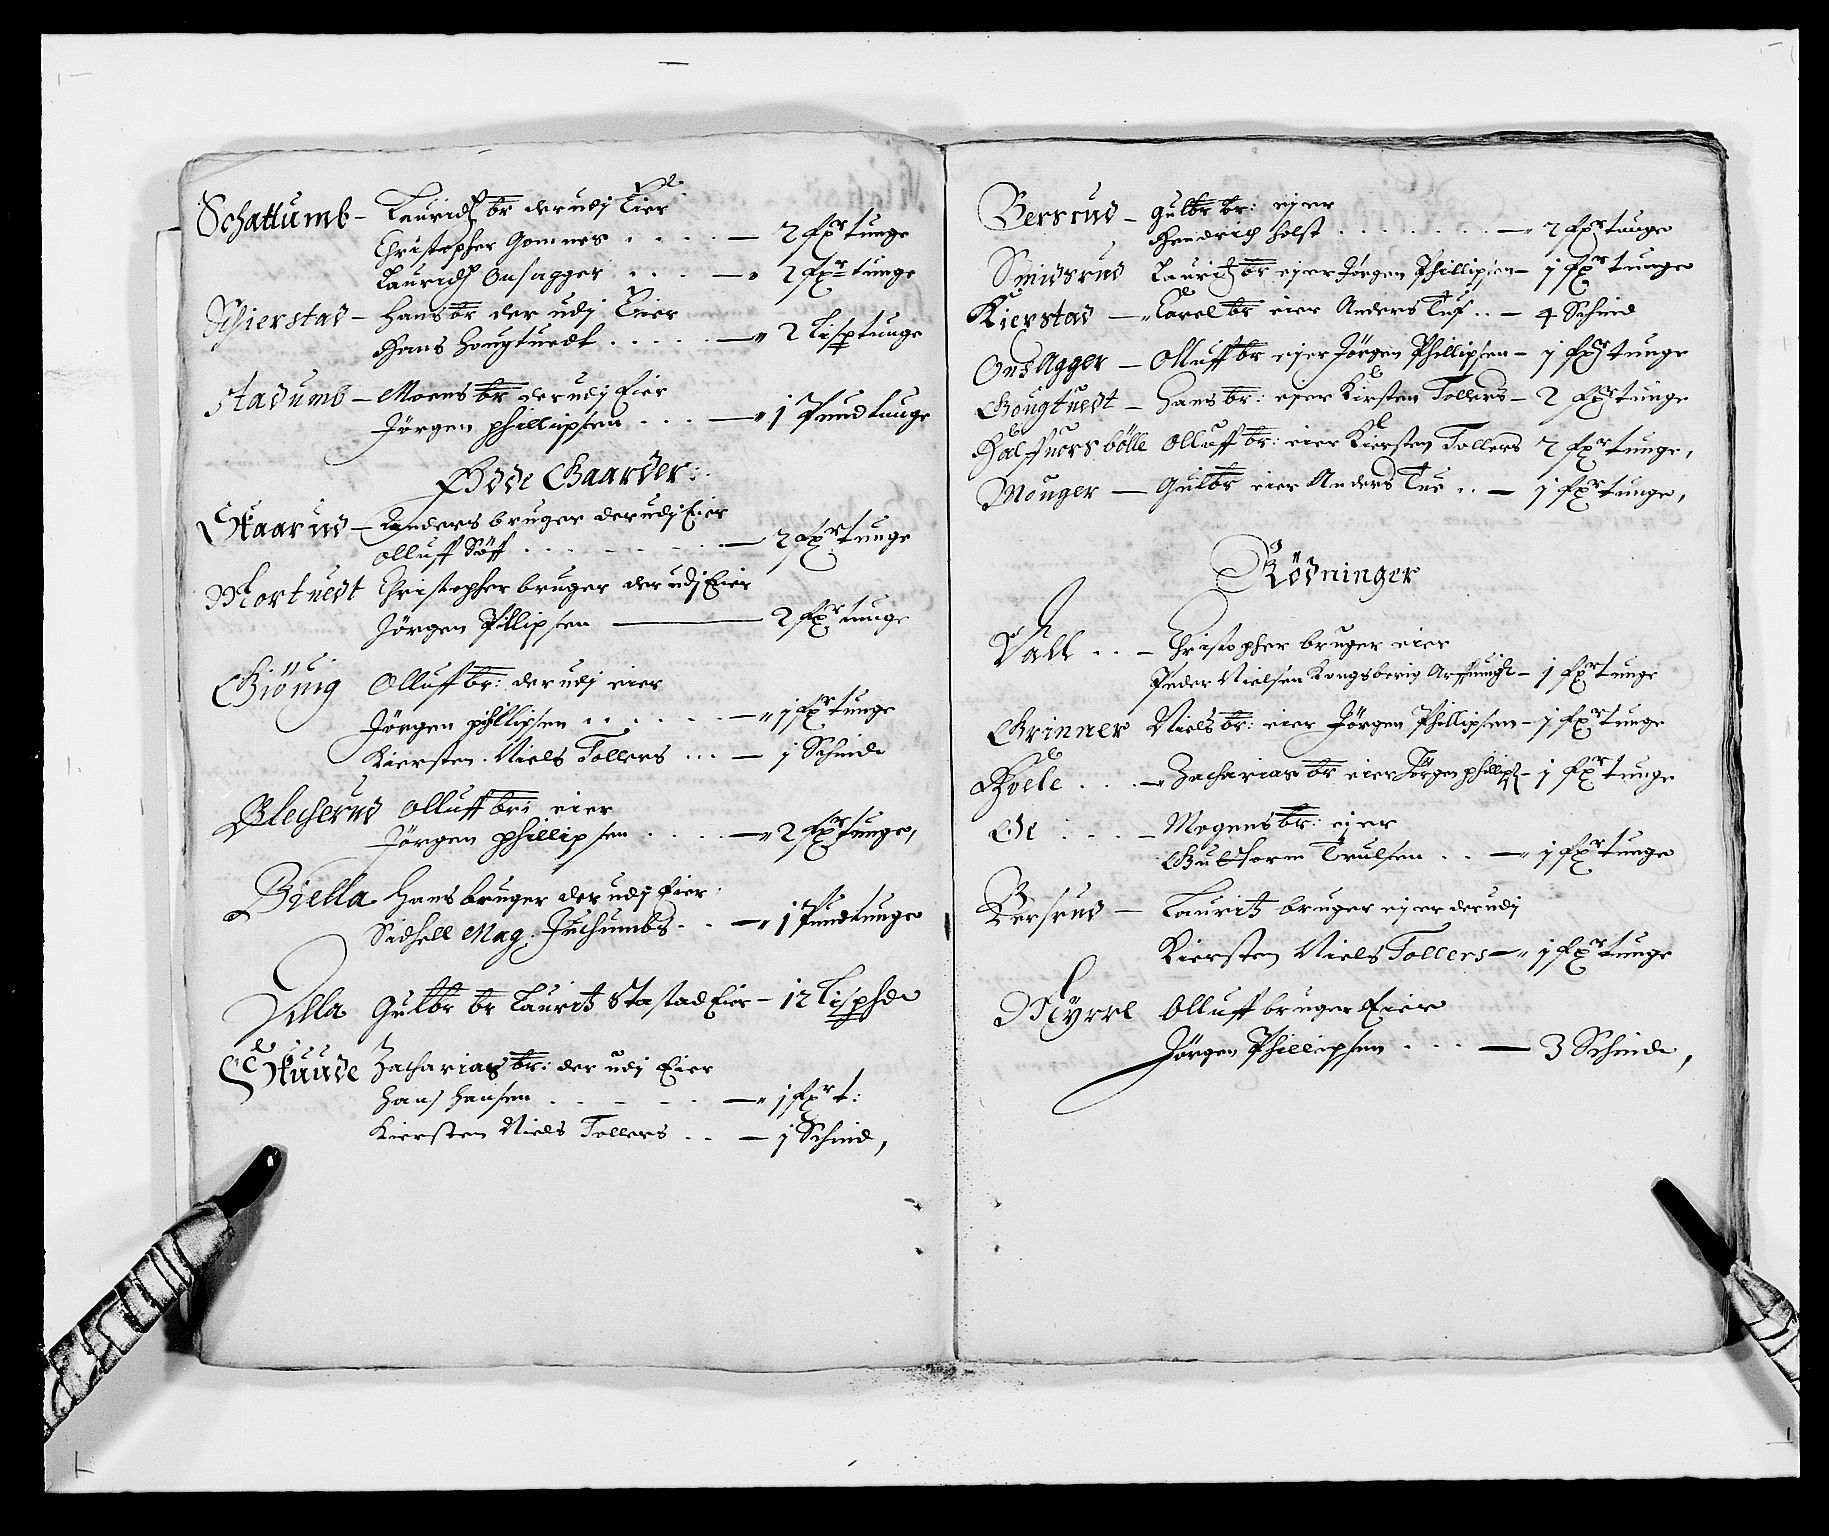 Schattumb – Lauridz br der udj Eier
Christopher Gomnes . . . . — 2 fxr tunge
Lauridz Onsagger . . . . — 2 fxr tunge
Schierstad – Hans br der udj Eier
Hans Hougtuedt . . . . . — 2 Lisp tunge
Stadumb – Moens br der udj Eier
Jörgen phillipsen . . . — 1 Pund tunge
Ödde Gaarder:
Skaarud – Anders bruger der udj Eier
olluff Söff . . . . . — 2 fxr tunge
Mortuedt Christopher bruger der udj Eier
Jörgen Pillipsen — 2 fxr tunge
Giönig Olluff br: der udj eier
Jörgen phillipsen . . . . . — 1 fxr tunge
Kiersten Niels Tollers . . . — 1 Schind
Blecherud olluff br: eier
Jörgen phillipsen . . . . — 2 fxr tunge,
Biella Hans bruger der udj Eier
Sidsell Mag. Juchumbs . . — 1 Pund tunge
Villa Gulbr br Lauritz Stastad Eier – 12 Lispde
Skuude Zacharias br: der udj Eier
Hans Hansen . . . . . — 1 fxr t:
Kiersten Niels Tollers . . — 1 Schind,
Bersrud – Gulbr br: ejer
Hendrich Holst . . . . . . . — 2 fxr tunge
Smidsrud Lauridz br ejer Jörgen Phillipsen – 1 fxr tunge
Kierstad — Carel br eier Anders Tuf . . – 4 Schind
Onsagger — Olluff br ejer Jörgen Phillipsen – 1 fxr tunge
Hougtuedt – Hans br: ejer Kirsten Tollers – 2 fxr tunge
Halffuorsbölle Olluff br: eier Kiersten Tollers 2 fxr tunge,
Mouger — Gulbr eier Anders Tue . . – 1 fxr tunge,
Rödninger
Vall . . – Christopher bruger eier
Peder Nielsen Kongsberig – 1 fxr tunge
Grinner Niels br: eier Jörgen Phillipsen – 1 fxr tunge
Hoele . . . – Zacharias br eier Jörgen phillips – 1 fxr tunge
Ge . . . . – Mogens br: ejer
Gulborn Trulsen . . — 1 fxr tunge
Kersrud – Lauritz bruger ejer der udj
Kiersten Niels Tollers — 1 fxr tunge
Myrrl Olluff bruger Eier
Jörgen Phillipsen . . . — 3 Schind,